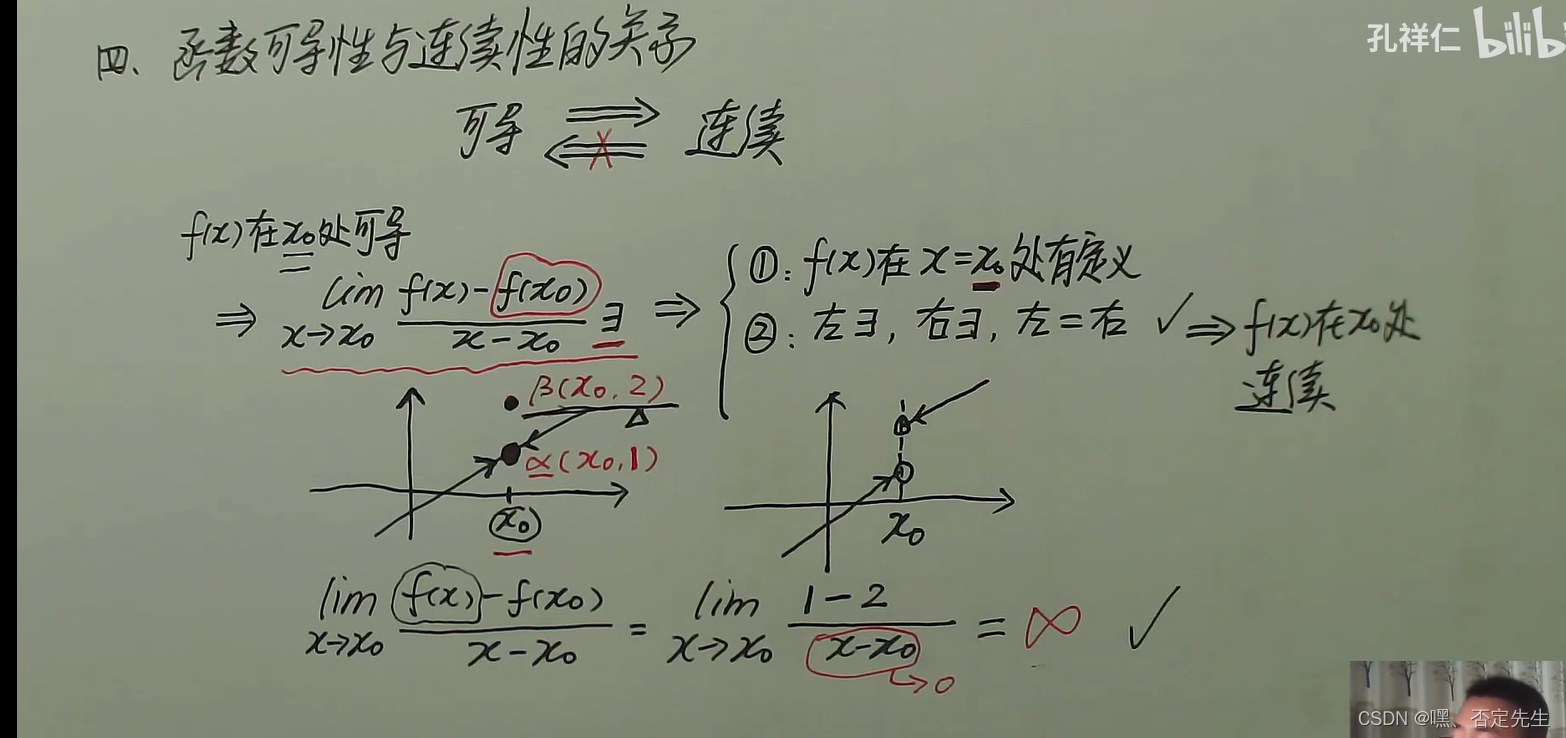 孔祥仁 bilib
四、函数可导性与连续性的关系
可导 ⇒ ⇍ 连续
f(x)在x₀处可导
⇒ lim x→x₀ f(x)-f(x₀) / x-x₀ ∃ ⇒ { ①: f(x)在x=x₀处有定义
②: 左∃, 右∃, 左=右 ✓ ⇒ f(x)在x₀处
连续
β(x₀, 2)
Δ
α(x₀, 1)
x₀
x₀
lim x→x₀ f(x)-f(x₀) / x-x₀ = lim x→x₀ 1-2 / x-x₀ = ∞ ✓
→0
CSDN @嘿、否定先生